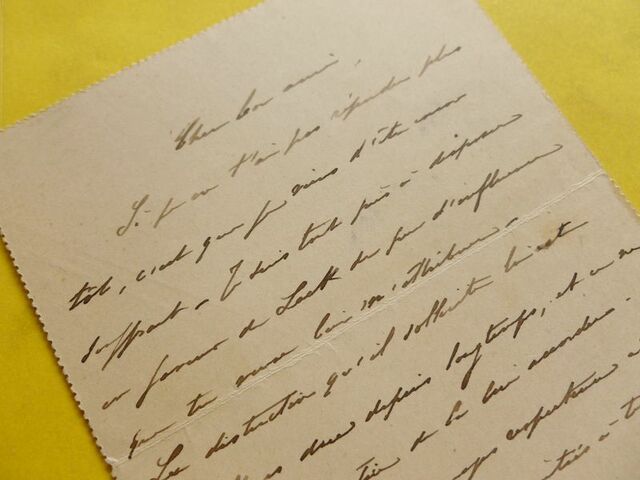 Cher bon ami,
Si je ne t'ai pas répondu plus
tôt, c'est que je viens d'être
souffrant - Je suis tout prêt à disposer
en faveur de du peu d'influence
que tu veux bien m'attribuer -
La distinction qu'il sollicite lui est
due depuis longtemps, et on ne
de la lui accorder.
respectueux
à t